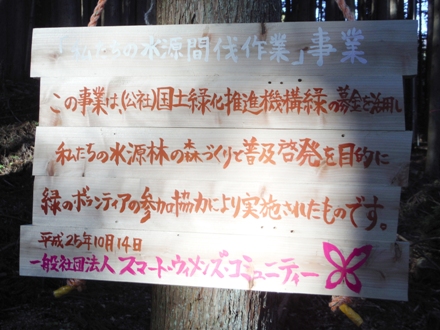 「私たちの水源間伐作業」事業
この事業は、(公社)国土緑化推進機構緑の募金を活用し
私たちの水源林の森づくりと普及啓発を目的に
緑のボランティアの参加協力により実施されたものです。
平成25年10月14日
一般社団法人 スマート・ウィメンズ・コミュニティー